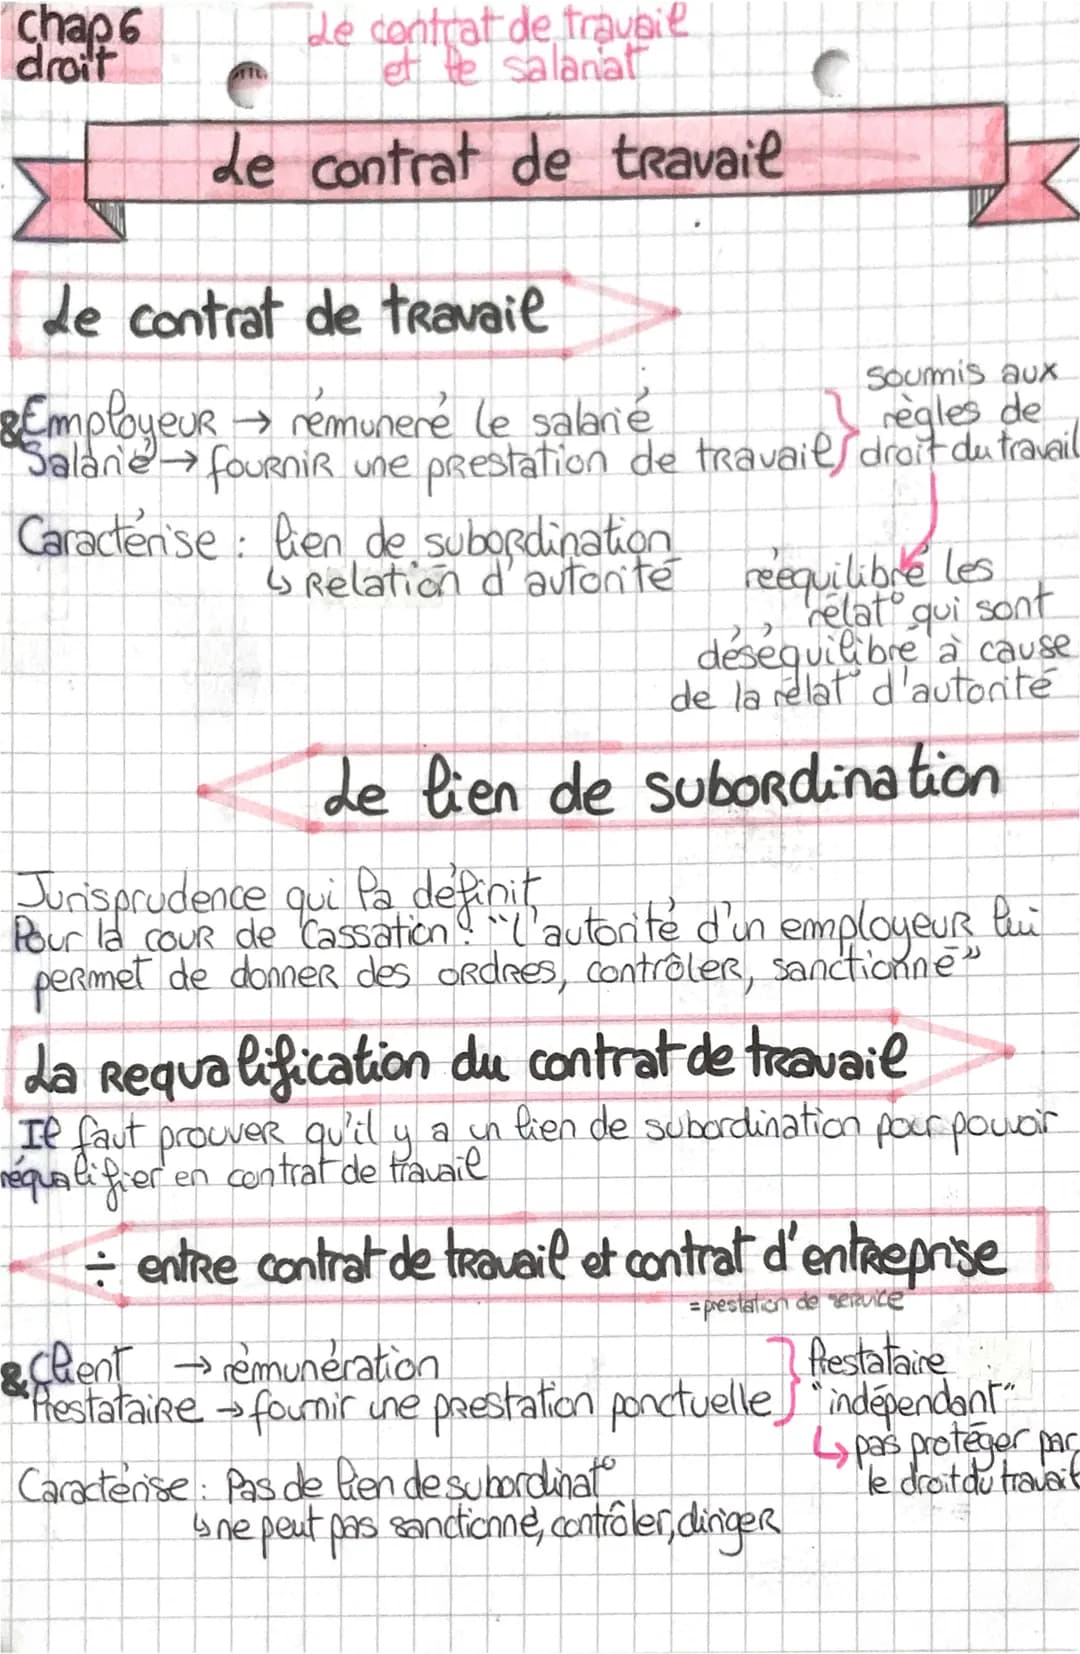 chap 6
droit
Le contrat de travail
et le salariat
Le contrat de travail
Le contrat de travail
soumis aux
& Employeur → rémuneré le salarié } règles de
Salarié → fournir une prestation de travail } droit du travail
Caractérise : lien de subordination
↳ Relation d'autorité
rééquilibré les
rélat° qui sont
déséquilibré à cause
de la rélat° d'autorité
Le lien de subordination
Jurisprudence qui l'a définit
Pour la cour de Cassation : "l'autorité d'un employeur lui
permet de donner des ordres, contrôler, sanctionné"
La requalification du contrat de travail
Il faut prouver qu'il y a un lien de subordination pour pouvoir
réqualifier en contrat de travail
÷ entre contrat de travail et contrat d'entreprise
= prestation de service
& Client → rémunération } Prestataire
Prestataire → fournir une prestation ponctuelle } "indépendant"
↳ pas protéger par
le droit du travail
Caractérise : Pas de lien de subordinat°
↳ ne peut pas sanctionné, contrôler, diriger